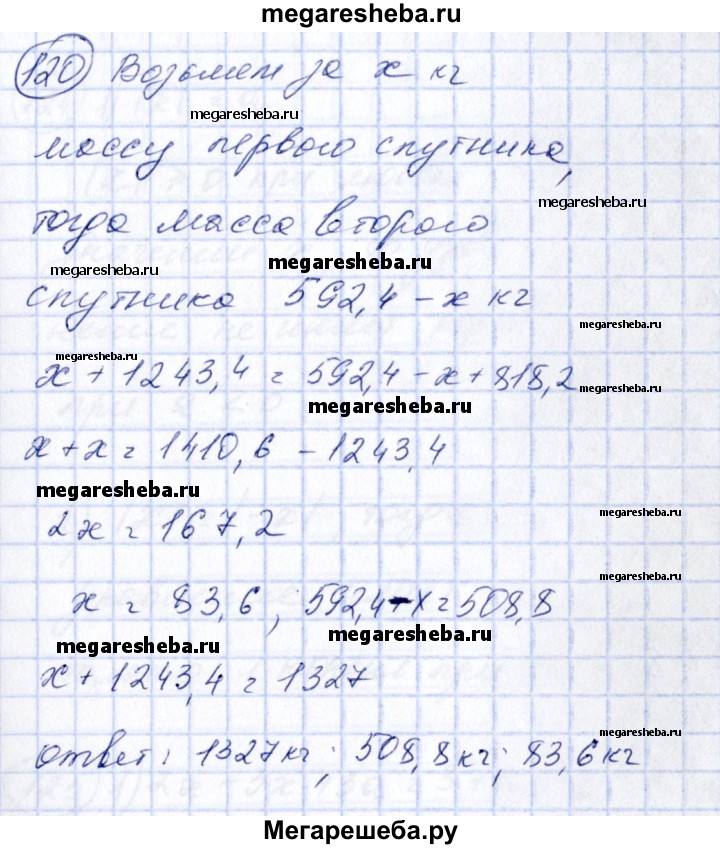 megaresheba.ru
120 Возьмем за x кг
megaresheba.ru
массу первого спутника,
megaresheba.ru
тогда масса второго
megaresheba.ru
megaresheba.ru
спутника 592,4 - x кг
megaresheba.ru
x + 1243,4 = 592,4 - x + 818,2
megaresheba.ru
megaresheba.ru
x + x = 1410,6 - 1243,4
megaresheba.ru
2x = 167,2
megaresheba.ru
megaresheba.ru
x = 83,6, 592,4 - x = 508,8
megaresheba.ru
megaresheba.ru
x + 1243,4 = 1327
megaresheba.ru
ответ: 1327 кг; 508,8 кг; 83,6 кг
megaresheba.ru
Мегарешеба.ру